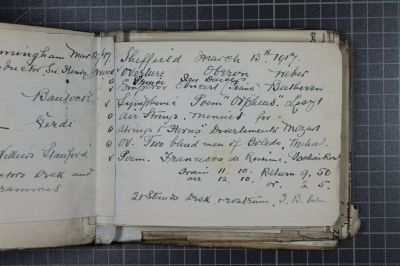 mingham Mar 12/17.
ductor Sir Henry
Bantock
Verdi
Villiers Stanford
Desk and
Sheffield March 13th 1917
v Overture Oberon Weber
o Emperor Concert Piano Beethoven
v Symphonic Poem "Orpheus" Liszt
o Air Strings, Menuet for
o Strings & Horns Divertimento Mozart
o Ov. Two blind men of Toledo, Mehul.
v Poem. Francesca da Rimini, Tschaikov
Train 11. 10. Return 9. 50
arr 12. 10. or 2 5.
20 Stands Desk, rostrum, J. B.